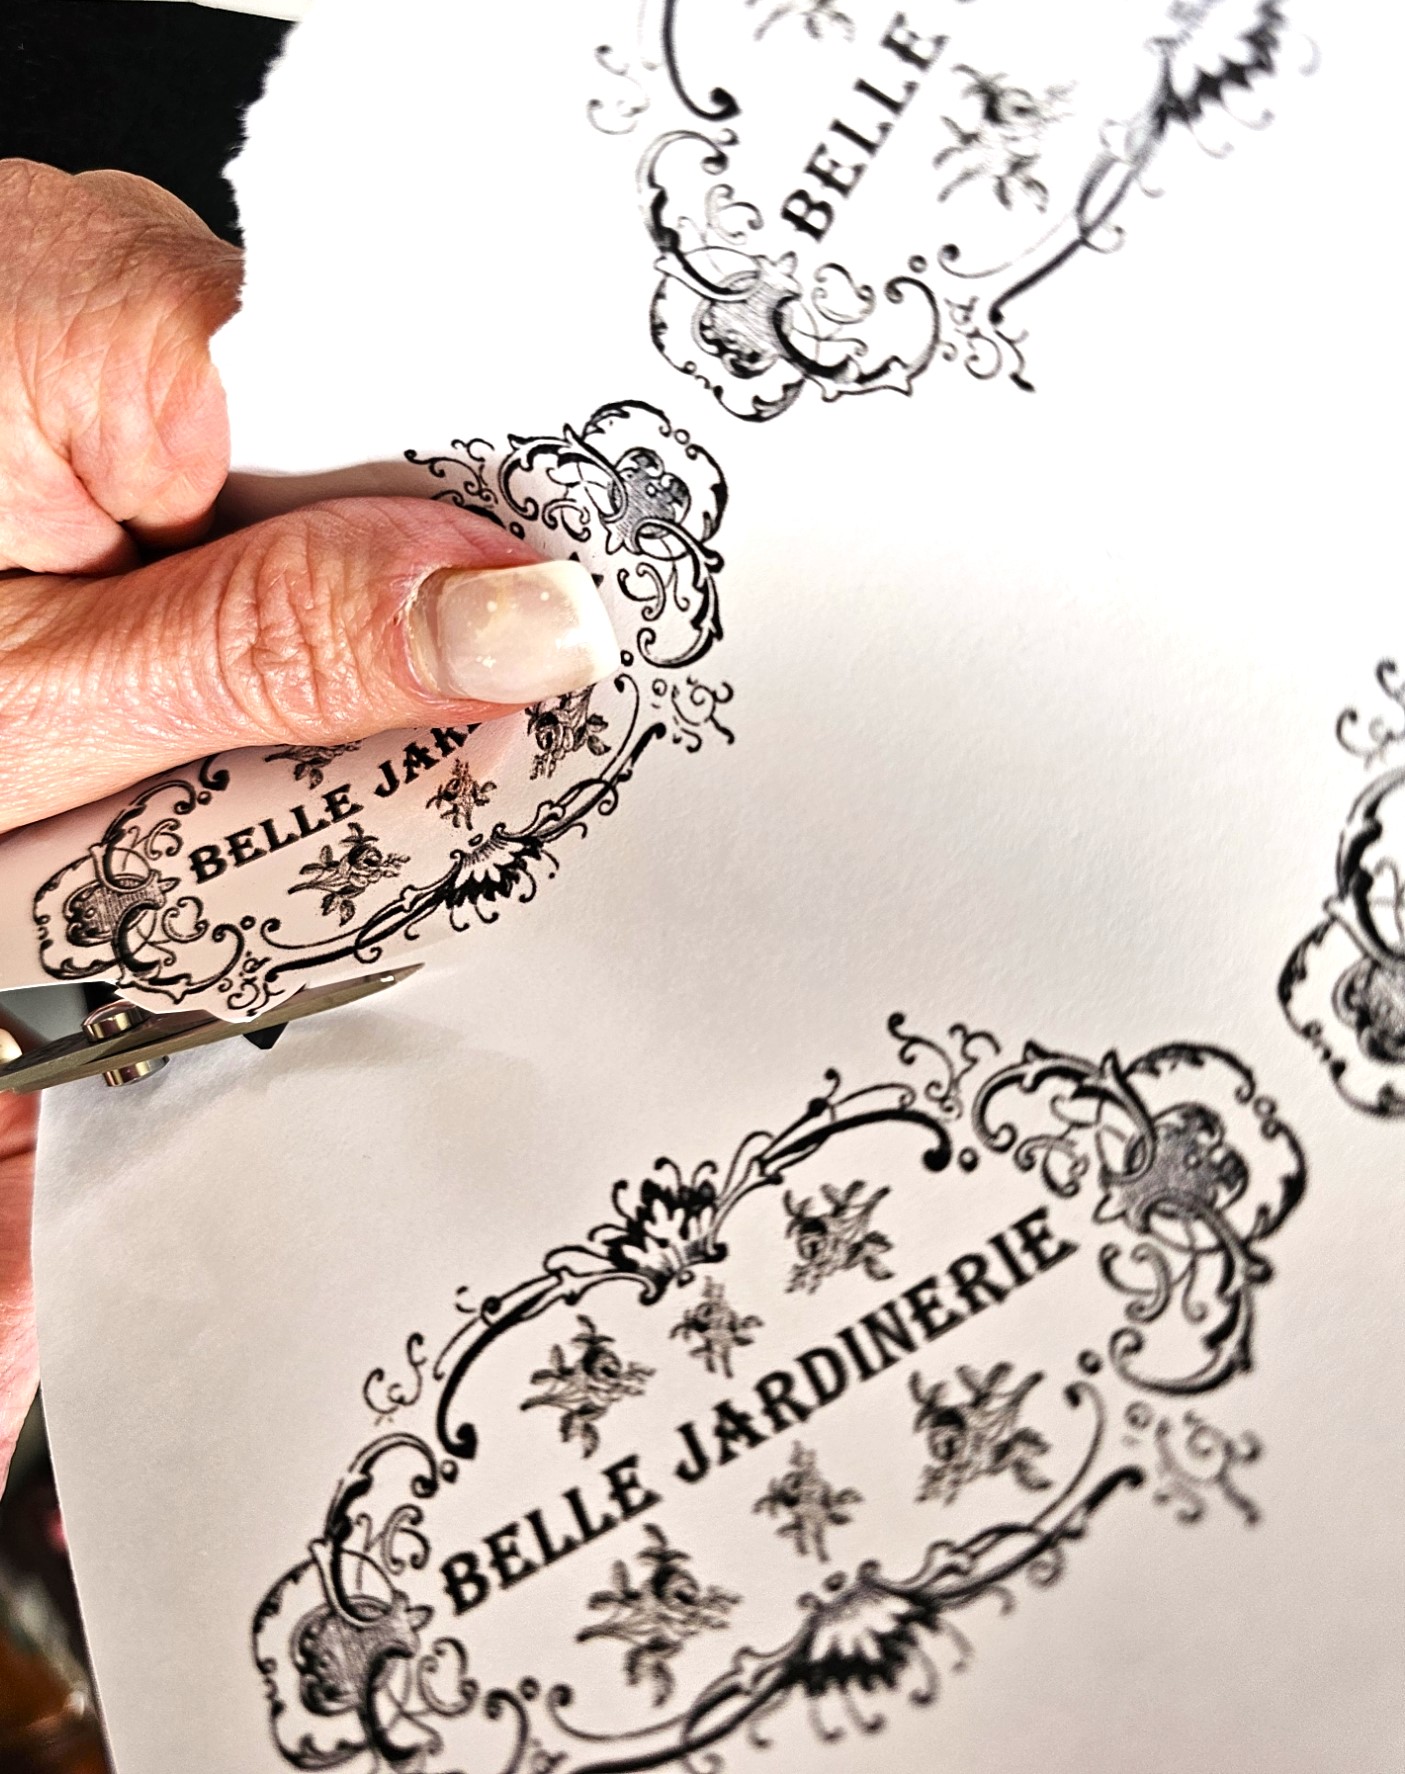 BELLE
BELLE JAR
BELLE JARDINERIE